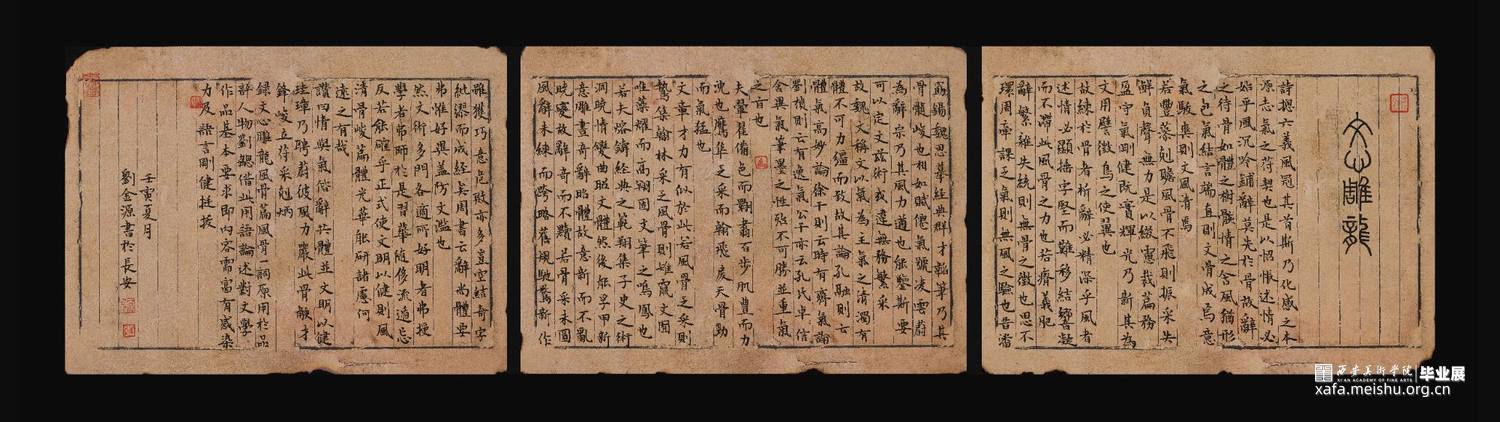 文心雕龍
詩總六義風冠其首斯乃化感之本
源志氣之符契也是以怊悵述情必
始乎風沉吟鋪辭莫先於骨故辭
之待骨如體之樹骸情之含風猶形
之包氣結言端直則文骨成焉意
氣駿爽則文風清焉
若豐藻剋贍風骨不飛則振采失
鮮負聲無力是以綴慮裁篇務
盈守氣剛健既實輝光乃新其為
文用譬徵鳥之使翼也
故練於骨者析辭必精深乎風者
述情必顯捶字堅而難移結響凝
而不滯此風骨之力也若瘠義肥
辭繁雜失統則無骨之徵也思不
環周牽課乏氣則無風之驗也昔潘
勗錫魏思摹經典群才韜筆乃其
骨髓峻也相如賦僊氣號凌雲蔚
為辭宗乃其風力遒也能鑒斯要
可以定文茲術或違無務繁采
故魏文稱文以氣為主氣之清濁有
體不可力彊而致故其論孔融則云
體氣高妙論徐幹則云時有齊氣論
劉楨則云有逸氣公幹亦云孔氏卓卓信
含異氣筆墨之性殆不可勝並重氣
之旨也
夫翬翟備色而翾翥百步肌豐而力
沈也鷹隼乏采而翰飛戾天骨勁
而氣猛也
文章才力有似於此若風骨乏采則
鷙集翰林采乏風骨則雉竄文囿
唯藻耀而高翔固文筆之鳴鳳也
若夫熔鑄經典之範翔集子史之術
洞曉情變曲昭文體然後能孚甲新
意雕畫奇辭昭體故意新而不亂
曉變故辭奇而不黷若骨采未圓
風辭未練而跨略舊規馳騖新作
雖獲巧意危敗亦多豈空結奇字
紕繆而成經矣周書云辭尚體要
弗惟好異蓋防文濫也
然文術多門各適所好明者弗授
學者弗師於是習華隨侈流遁忘
反若能確乎正式使文明以健則風
清骨峻篇體光華能研諸慮何
遠之有哉
讚曰情與氣偕辭共體並文明以健
珪璋乃聘蔚彼風力嚴此骨鯁才
鋒峻立符采剋炳
錄文心雕龍風骨篇風骨一詞原用於品
評人物劉勰借此用語論述對文學
作品基本要求即內容需富有感染
力及語言剛健挺拔
壬寅夏月
劉金源書於長安
西安美術學院 毕业展
XI'AN ACADEMY OF FINE ARTS
xafa.meishu.org.cn